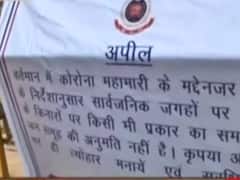 अपील
वर्तमान में कोरोना महामारी के मद्देनजर
के निर्देशानुसार सार्वजनिक जगहों पर
के किनारों पर किसी भी प्रकार का सम
जन समूह की अनुमति नहीं है। कृपया अ
पर ही त्योहार मनायें एवं